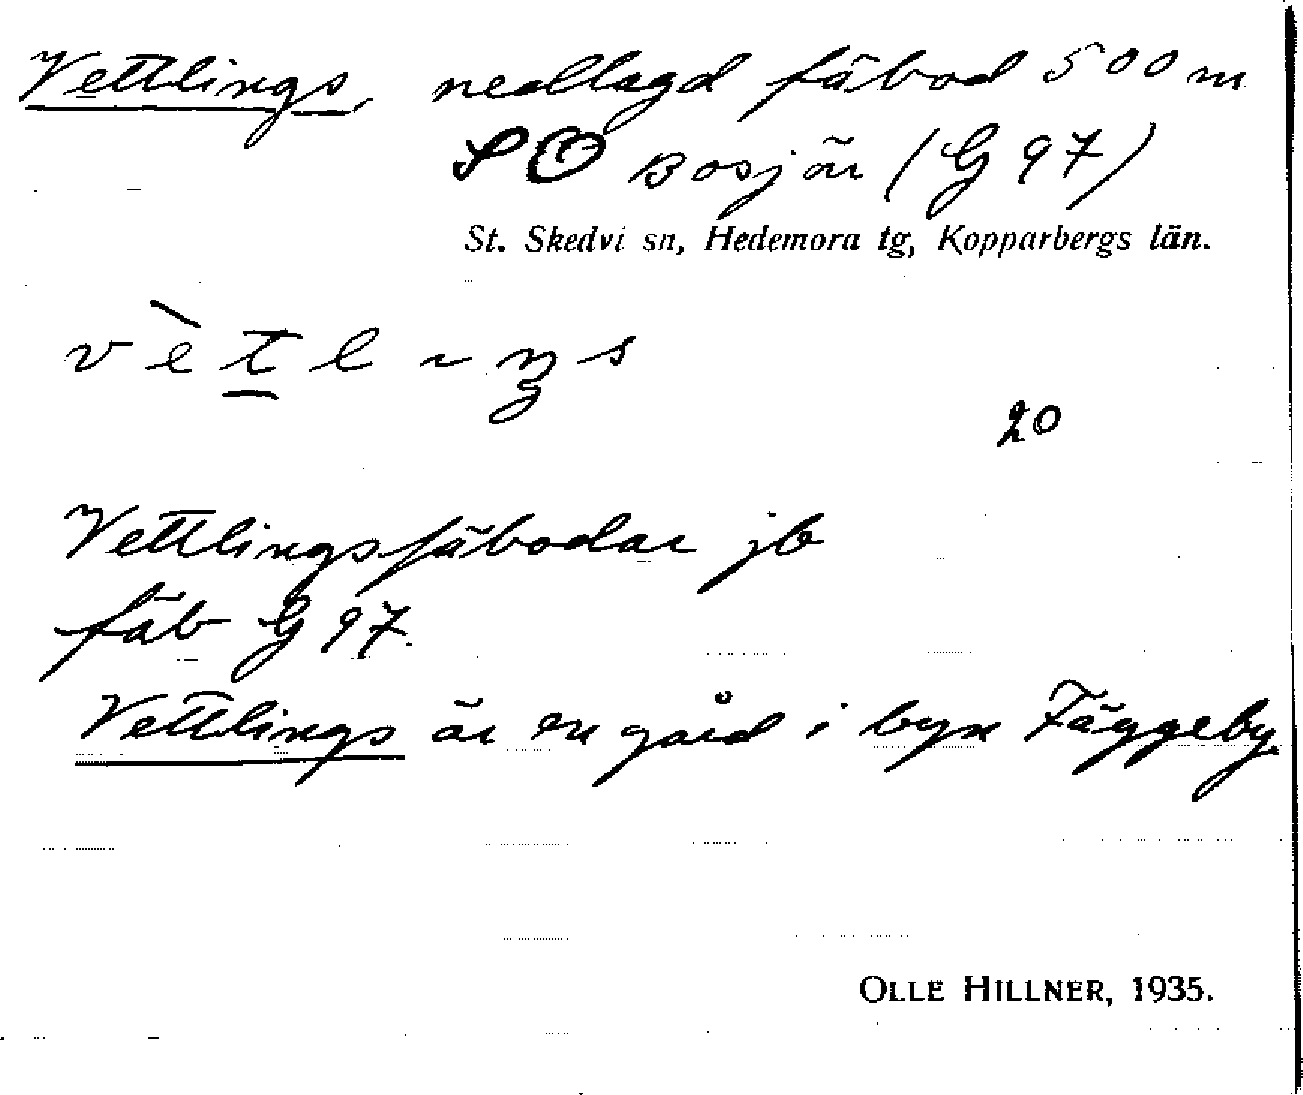 Vettlings, nedlagd fäbod 500 m
SO Bosjön (G 97)
St. Skedvi sn, Hedemora tg, Kopparbergs län.
vètlıŋs
20
Vettlingsfäbodar jb
fäb G 97.
Vettlings är en gård i byn Fäggeby
OLLE HILLNER, 1935.